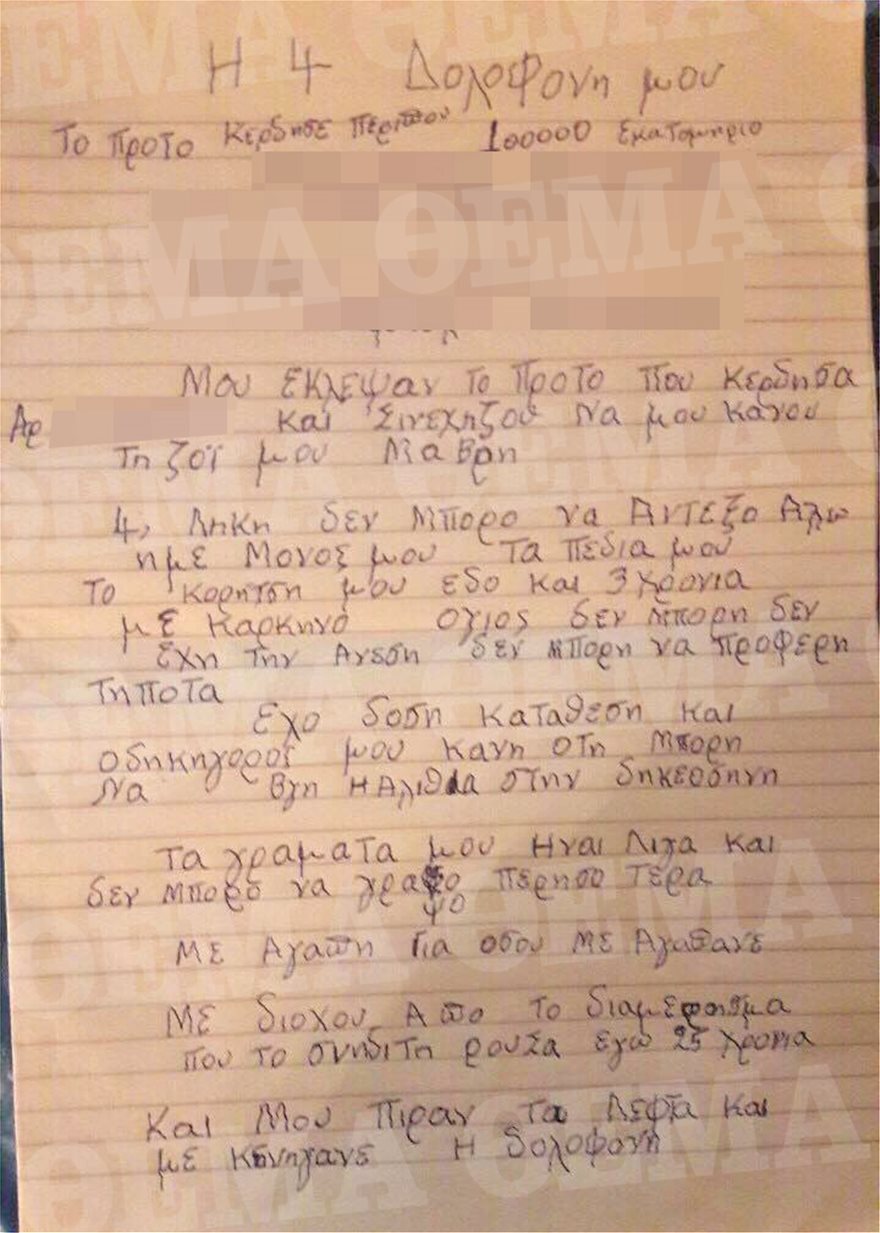 Η 4 Δολοφονη μου
Το προτο Κερδησε περιπου 100000 Εκατομηριο
Μου ΕΚλεψαν το προτο που κερδησα
Αρ και Σινεχηζου να μου κανου
Τη ζοϊ μου Μαβρη
4, Ληκη δεν Μπορο να Αντεξο Αλω
ημε Μονος μου τα πεδια μου
Το κορητση μου εδο και 3 χρονια
με Καρκηνο ογιος δεν Μπορη δεν
εχη την Ανεση δεν μπορη να προφερη
τηποτα
Εχο δοση καταθεση και
οδηκηγοροϊ μου κανη οτη Μπορη
Να Βγη Η Αλιθια στην δηκεοσηνη
Τα γραματα μου Ηναι Λιγα και
δεν μπορο να γραψο περησο τερα
ψο
Με Αγαπη Για οσου Με Αγαπανε
Με διοχου Απο το διαμερησμα
που το σηνδιτη ρουσα εγω 25 χρονια
Και Μου Πιραν τα Λεφτα και
με κηνηγανε Η δολοφονη
ΘΕΜΑ